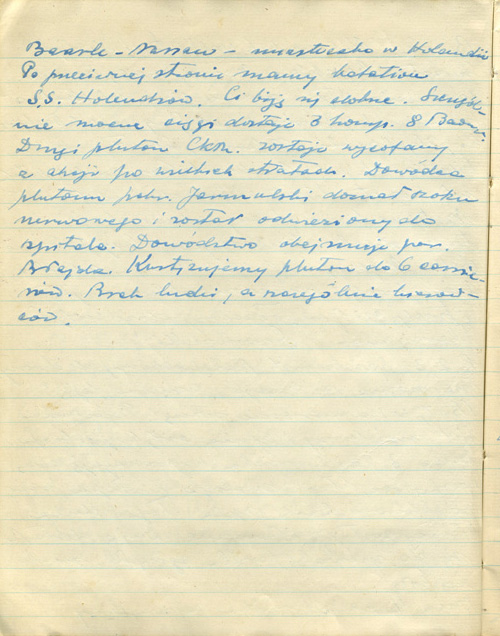 Baarle - Nassau - miasteczko w Holandii
Po przeciwnej stronie mamy batalion
S.S. Holendrów. Ci biją się dobrze. Szczegól-
nie mocne cięgi dostaje 3 komp. 8 Baonu.
Drugi pluton Ckm. zostaje wycofany
z akcji po wielkich stratach. Dowódca
plutonu por. Jarmulski doznał szoku
nerwowego i został odwieziony do
szpitala. Dowództwo obejmuje por.
Brejda. Kontynuujemy pluton do 6 carrie-
rów. Brak ludzi, a szczególnie kierow-
ców.